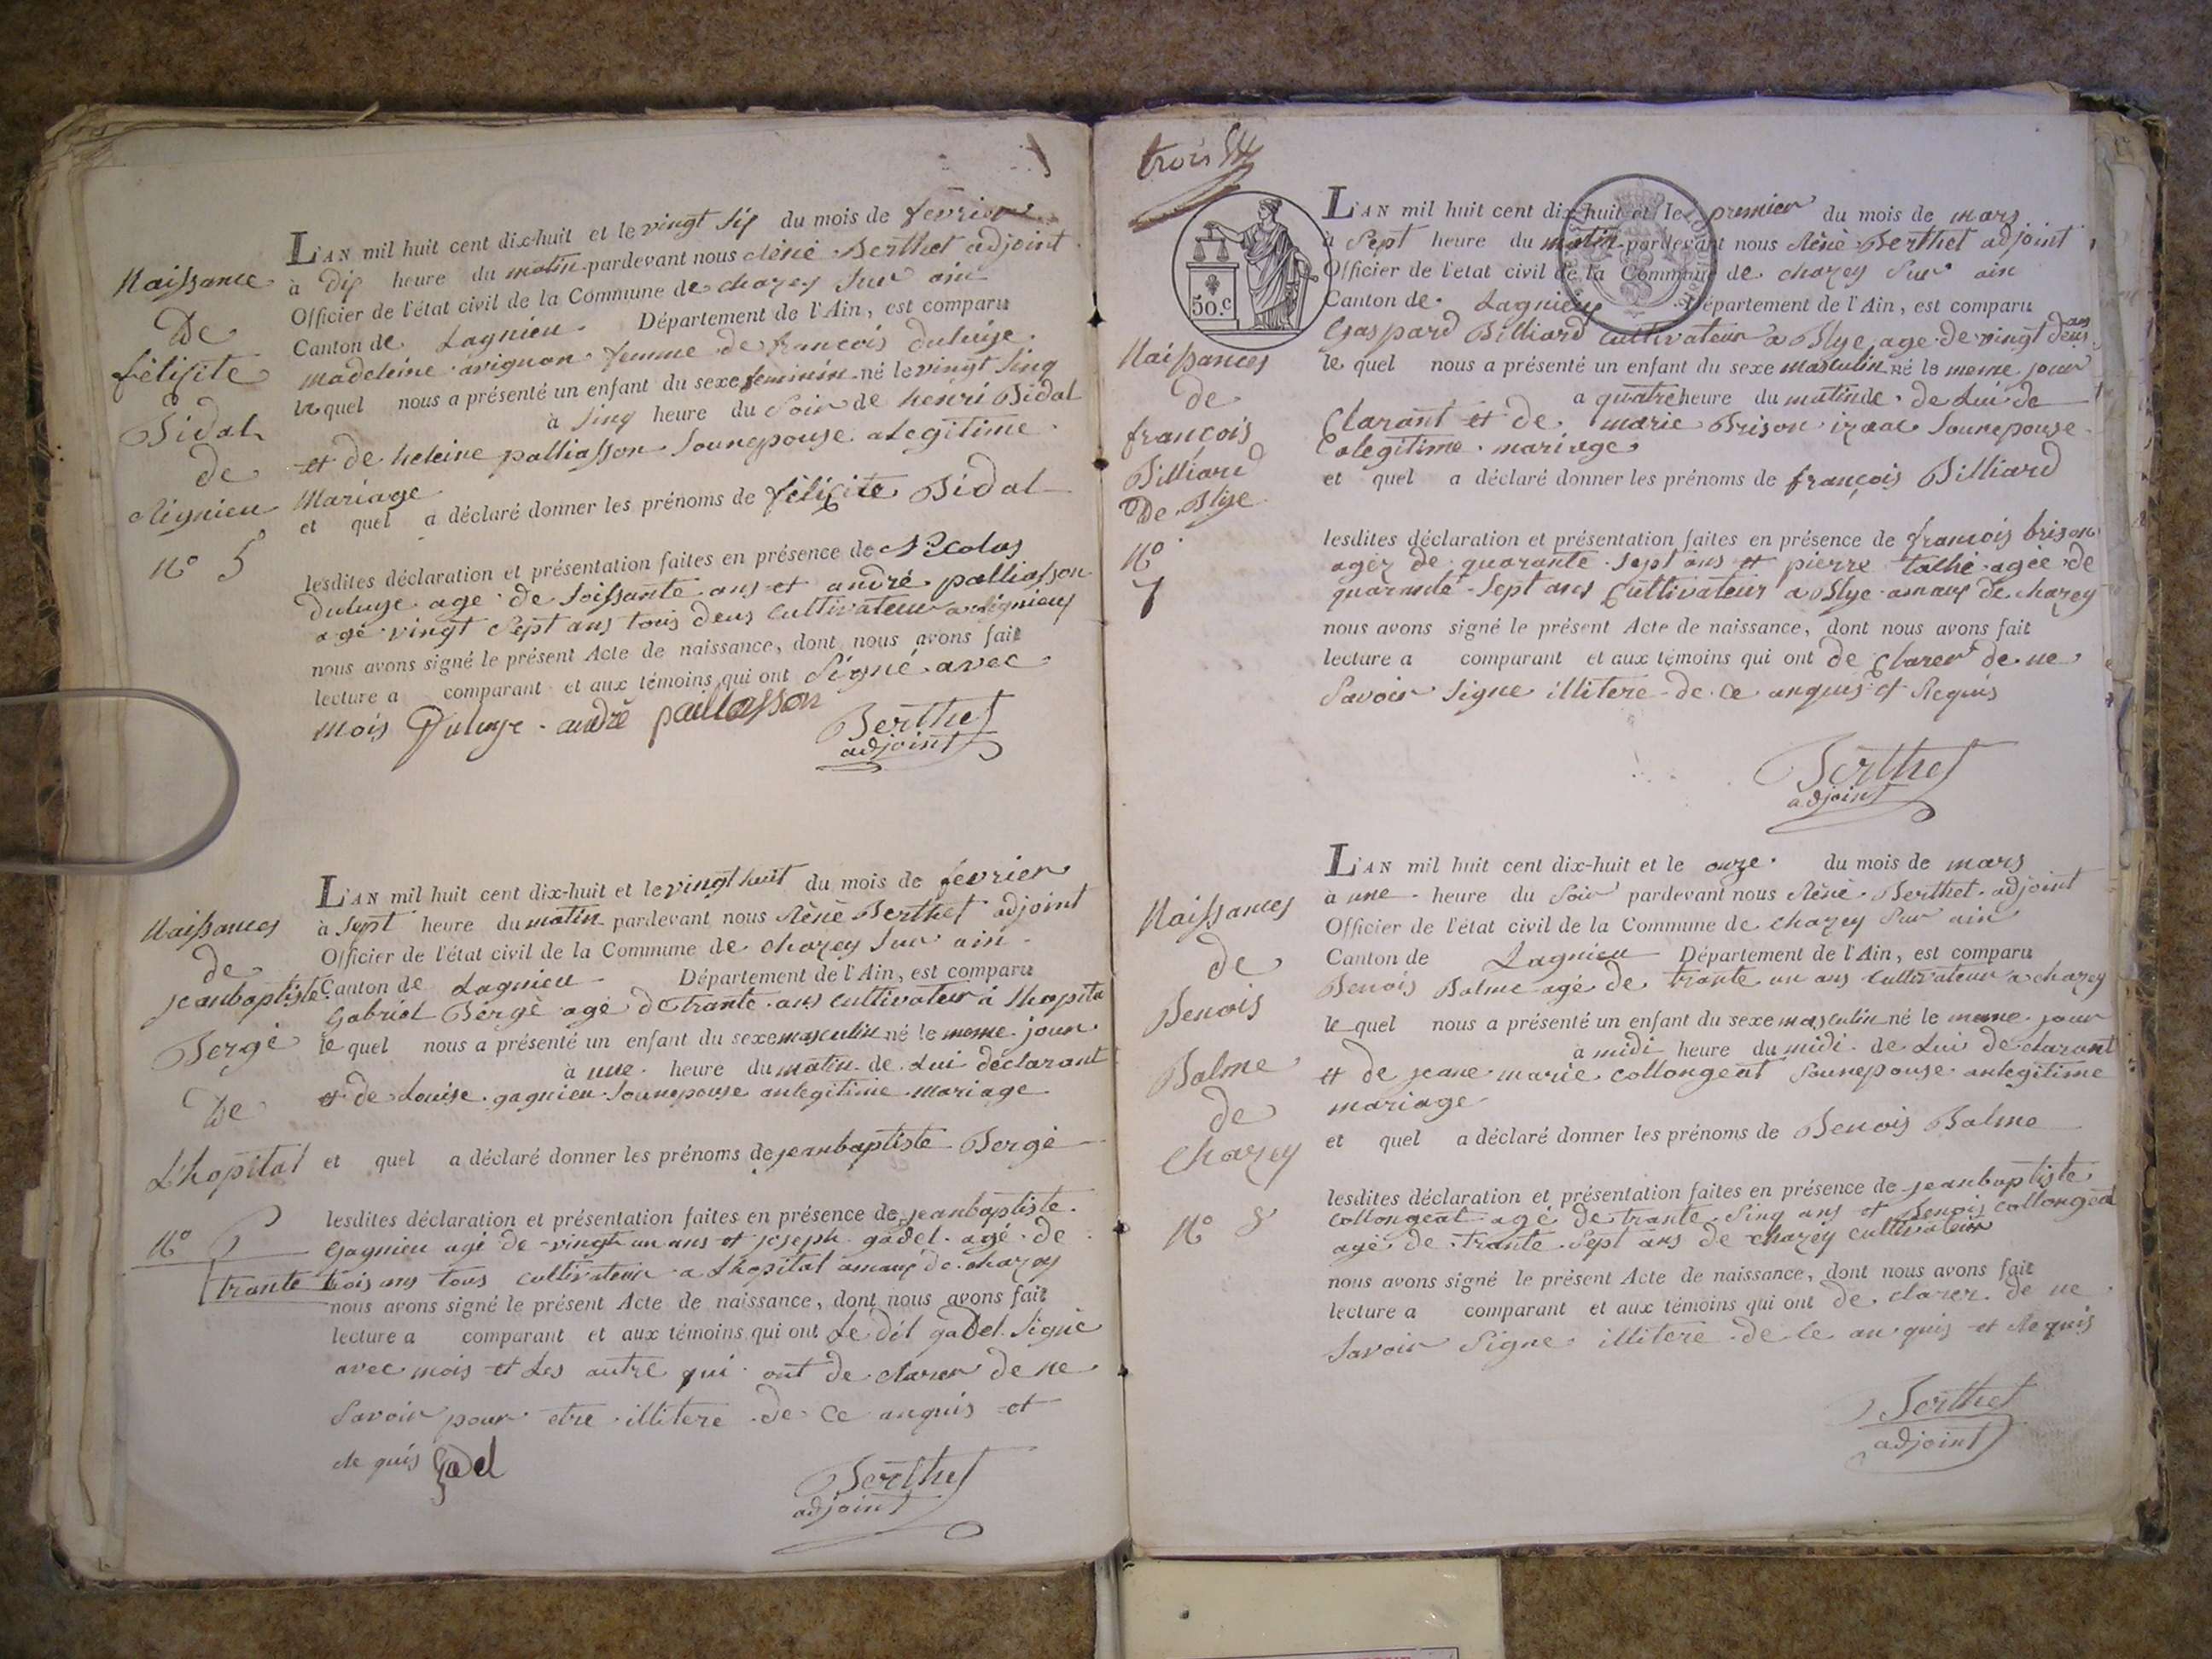 Naissance
De
félicité
Bidal
de
Rignieu
N° 5
L'AN mil huit cent dix-huit et le vingt six du mois de fevrier
à dix heure du matin pardevant nous Réné Berthet adjoint
Officier de l'état civil de la Commune de chazey sur ain
Canton de Lagnieu Département de l'Ain, est comparu
madeleine avignon femme de francois duluije
laquel nous a présenté un enfant du sexe feminin né le vingt sing
à sing heure du soir de henri Bidal
et de heleine palliasson sounepouse a Legitime
Mariage
et quel a déclaré donner les prénoms de félicite Bidal
lesdites déclaration et présentation faites en présence de Nicolas
duluye age de soissante ans et andré palliasson
agé vingt sept ans tous deus cultivateur a rignieus
nous avons signé le présent Acte de naissance, dont nous avons fait
lecture a comparant et aux témoins qui ont Signé avec
mois Duluye andré paillasson
Berthet
adjoint
Naissances
de
jeanbaptiste
Bergé
De
L'hopital
N° 6
L'AN mil huit cent dix-huit et le vingt huit du mois de fevrier
à sept heure du matin pardevant nous Réné Berthet adjoint
Officier de l'état civil de la Commune de chazey sur ain
Canton de Lagnieu Département de l'Ain, est comparu
Gabriel Bergé agé de trante ans cultivateur à Lhopital
le quel nous a présenté un enfant du sexe masculin né le meme jour
à une heure du matin de Lui déclarant
et de Louise gagnieu sounepouse anlegitime mariage
et quel a déclaré donner les prénoms de jeanbaptiste Bergé
lesdites déclaration et présentation faites en présence de jeanbaptiste
Gagnieu agé de vingt un ans et joseph gadel agé de
trante trois ans tous cultivateur a Lhopital amaux de chazey
nous avons signé le présent Acte de naissance, dont nous avons fait
lecture a comparant et aux témoins qui ont Le dit gadel Signé
avec mois et Les autre qui ont de clarer de ne
Savoir pour etre illitere de ce anquis et
Re quis Gadel
Berthet
adjoint
trois
50.c
Naissances
de
françois
Billiard
De Blye
N°
7
L'AN mil huit cent dix-huit et le premier du mois de mars
à Sept heure du matin pardevant nous Réné Berthet adjoint
Officier de l'etat civil de la Commune de chazey Sur ain
Canton de Lagnieu Département de l'Ain, est comparu
Gaspard Billiard cultivateur a Blye age de vingt deus ans
le quel nous a présenté un enfant du sexe masculin né le meme jour
a quatre heure du matin de de Lui de
Clarant et de marie Brison izaac sounepouse
a legitime mariage
et quel a déclaré donner les prénoms de françois Billiard
lesdites déclaration et présentation faites en présence de francois brison
agez de quarante sept ans et pierre taché agée de
quarante Sept ans Cultivateur a Blye amaux de chazey
nous avons signé le présent Acte de naissance, dont nous avons fait
lecture a comparant et aux témoins qui ont de Clarer de ne
Savoir Signe illitere de ce anquis et Requis
Berthet
adjoint
Naissances
de
Benois
Balme
de
Chazey
N° 8
L'AN mil huit cent dix-huit et le onze du mois de mars
à une heure du Soir pardevant nous Réné Berthet adjoint
Officier de l'état civil de la Commune de chazey Sur ain
Canton de Lagnieu Département de l'Ain, est comparu
Benois Balme agé de trante un ans cultivateur a chazey
le quel nous a présenté un enfant du sexe masculin né le meme jour
a midi heure du midi de Lui de clarant
et de jeane marie collongeat sounepouse anlegitime
mariage
et quel a déclaré donner les prénoms de Benois Balme
lesdites déclaration et présentation faites en présence de jeanbaptiste
Collongeat agé de trante sing ans et Benois collongeat
agé de trante Sept ans de chazey cultivateur
nous avons signé le présent Acte de naissance, dont nous avons fait
lecture a comparant et aux témoins qui ont de clarer de ne
Savoir Signe illitere de ce an quis et Requis
Berthet
adjoint